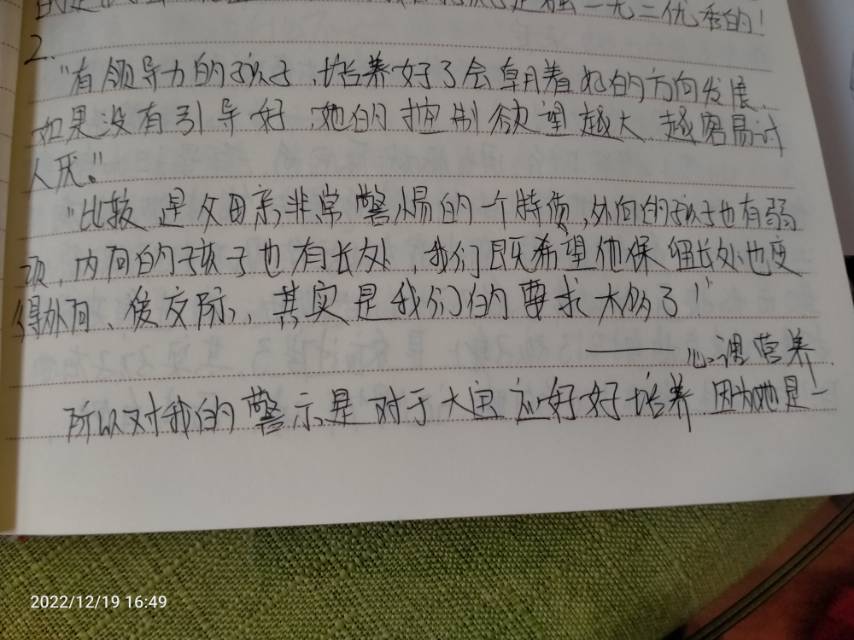 独一无二优秀的!
2.
"有领导力的孩子,培养好了会朝着好的方向发展,
如果没有引导好,她的控制欲望越大,越容易讨
人厌。"
"比较是父母亲非常警惕的一个特质,外向的孩子也有弱
项,内向的孩子也有长处,我们既希望他保留长处也变
得外向、爱交际,其实是我们的要求太多了!"
——心理营养
所以对我的警示是对于大宝应好好培养 因为她是一
2022/12/19 16:49